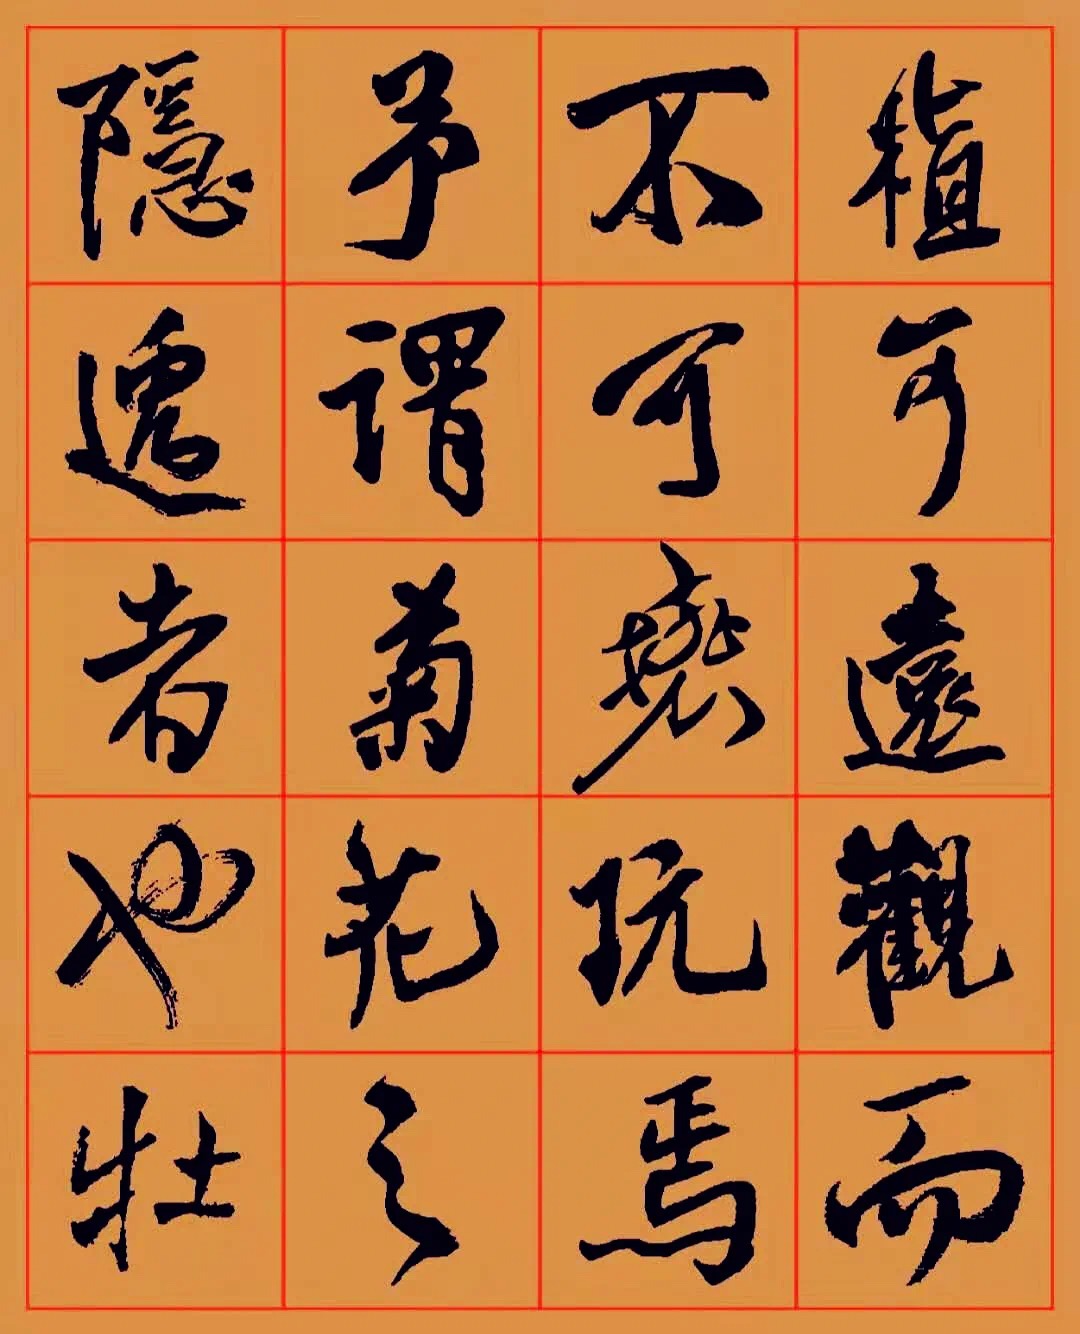 植可遠觀而
不可褻玩焉
予謂菊花之
隱逸者也牡